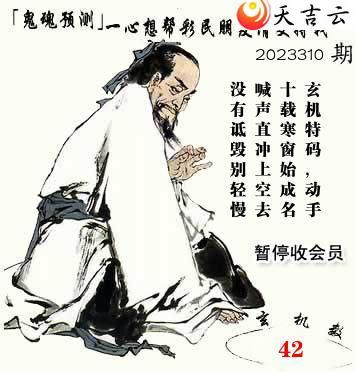 天吉云
「鬼魂预测」一心想帮彩民朋友
2023310 期
玄机特码，动手
十载寒窗始成名
喊声直冲上空去
没有诋毁别轻慢
暂停收会员
玄机数
42